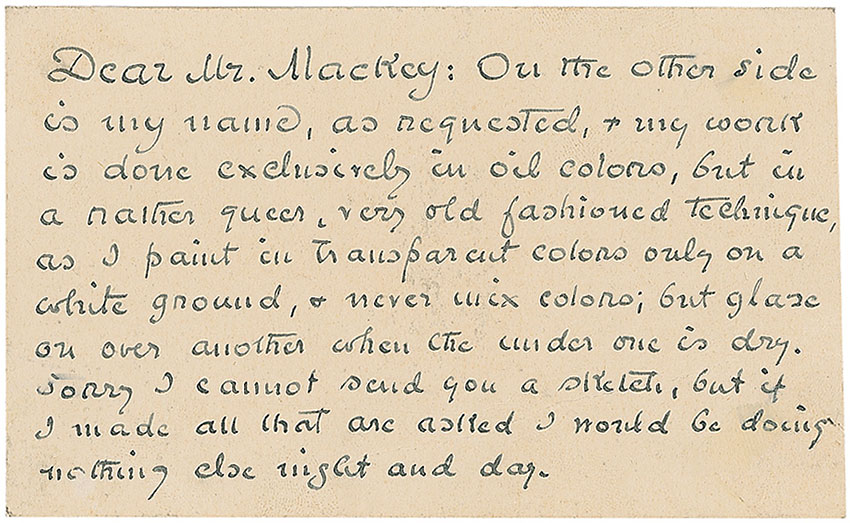 Dear Mr. Mackey: On the other side
is my name, as requested, & my work
is done exclusively in oil colors, but in
a rather queer, very old fashioned technique,
as I paint in transparent colors only on a
white ground, & never mix colors; but glaze
on over another when the under one is dry.
Sorry I cannot send you a sketch, but if
I made all that are asked I would be doing
nothing else night and day.